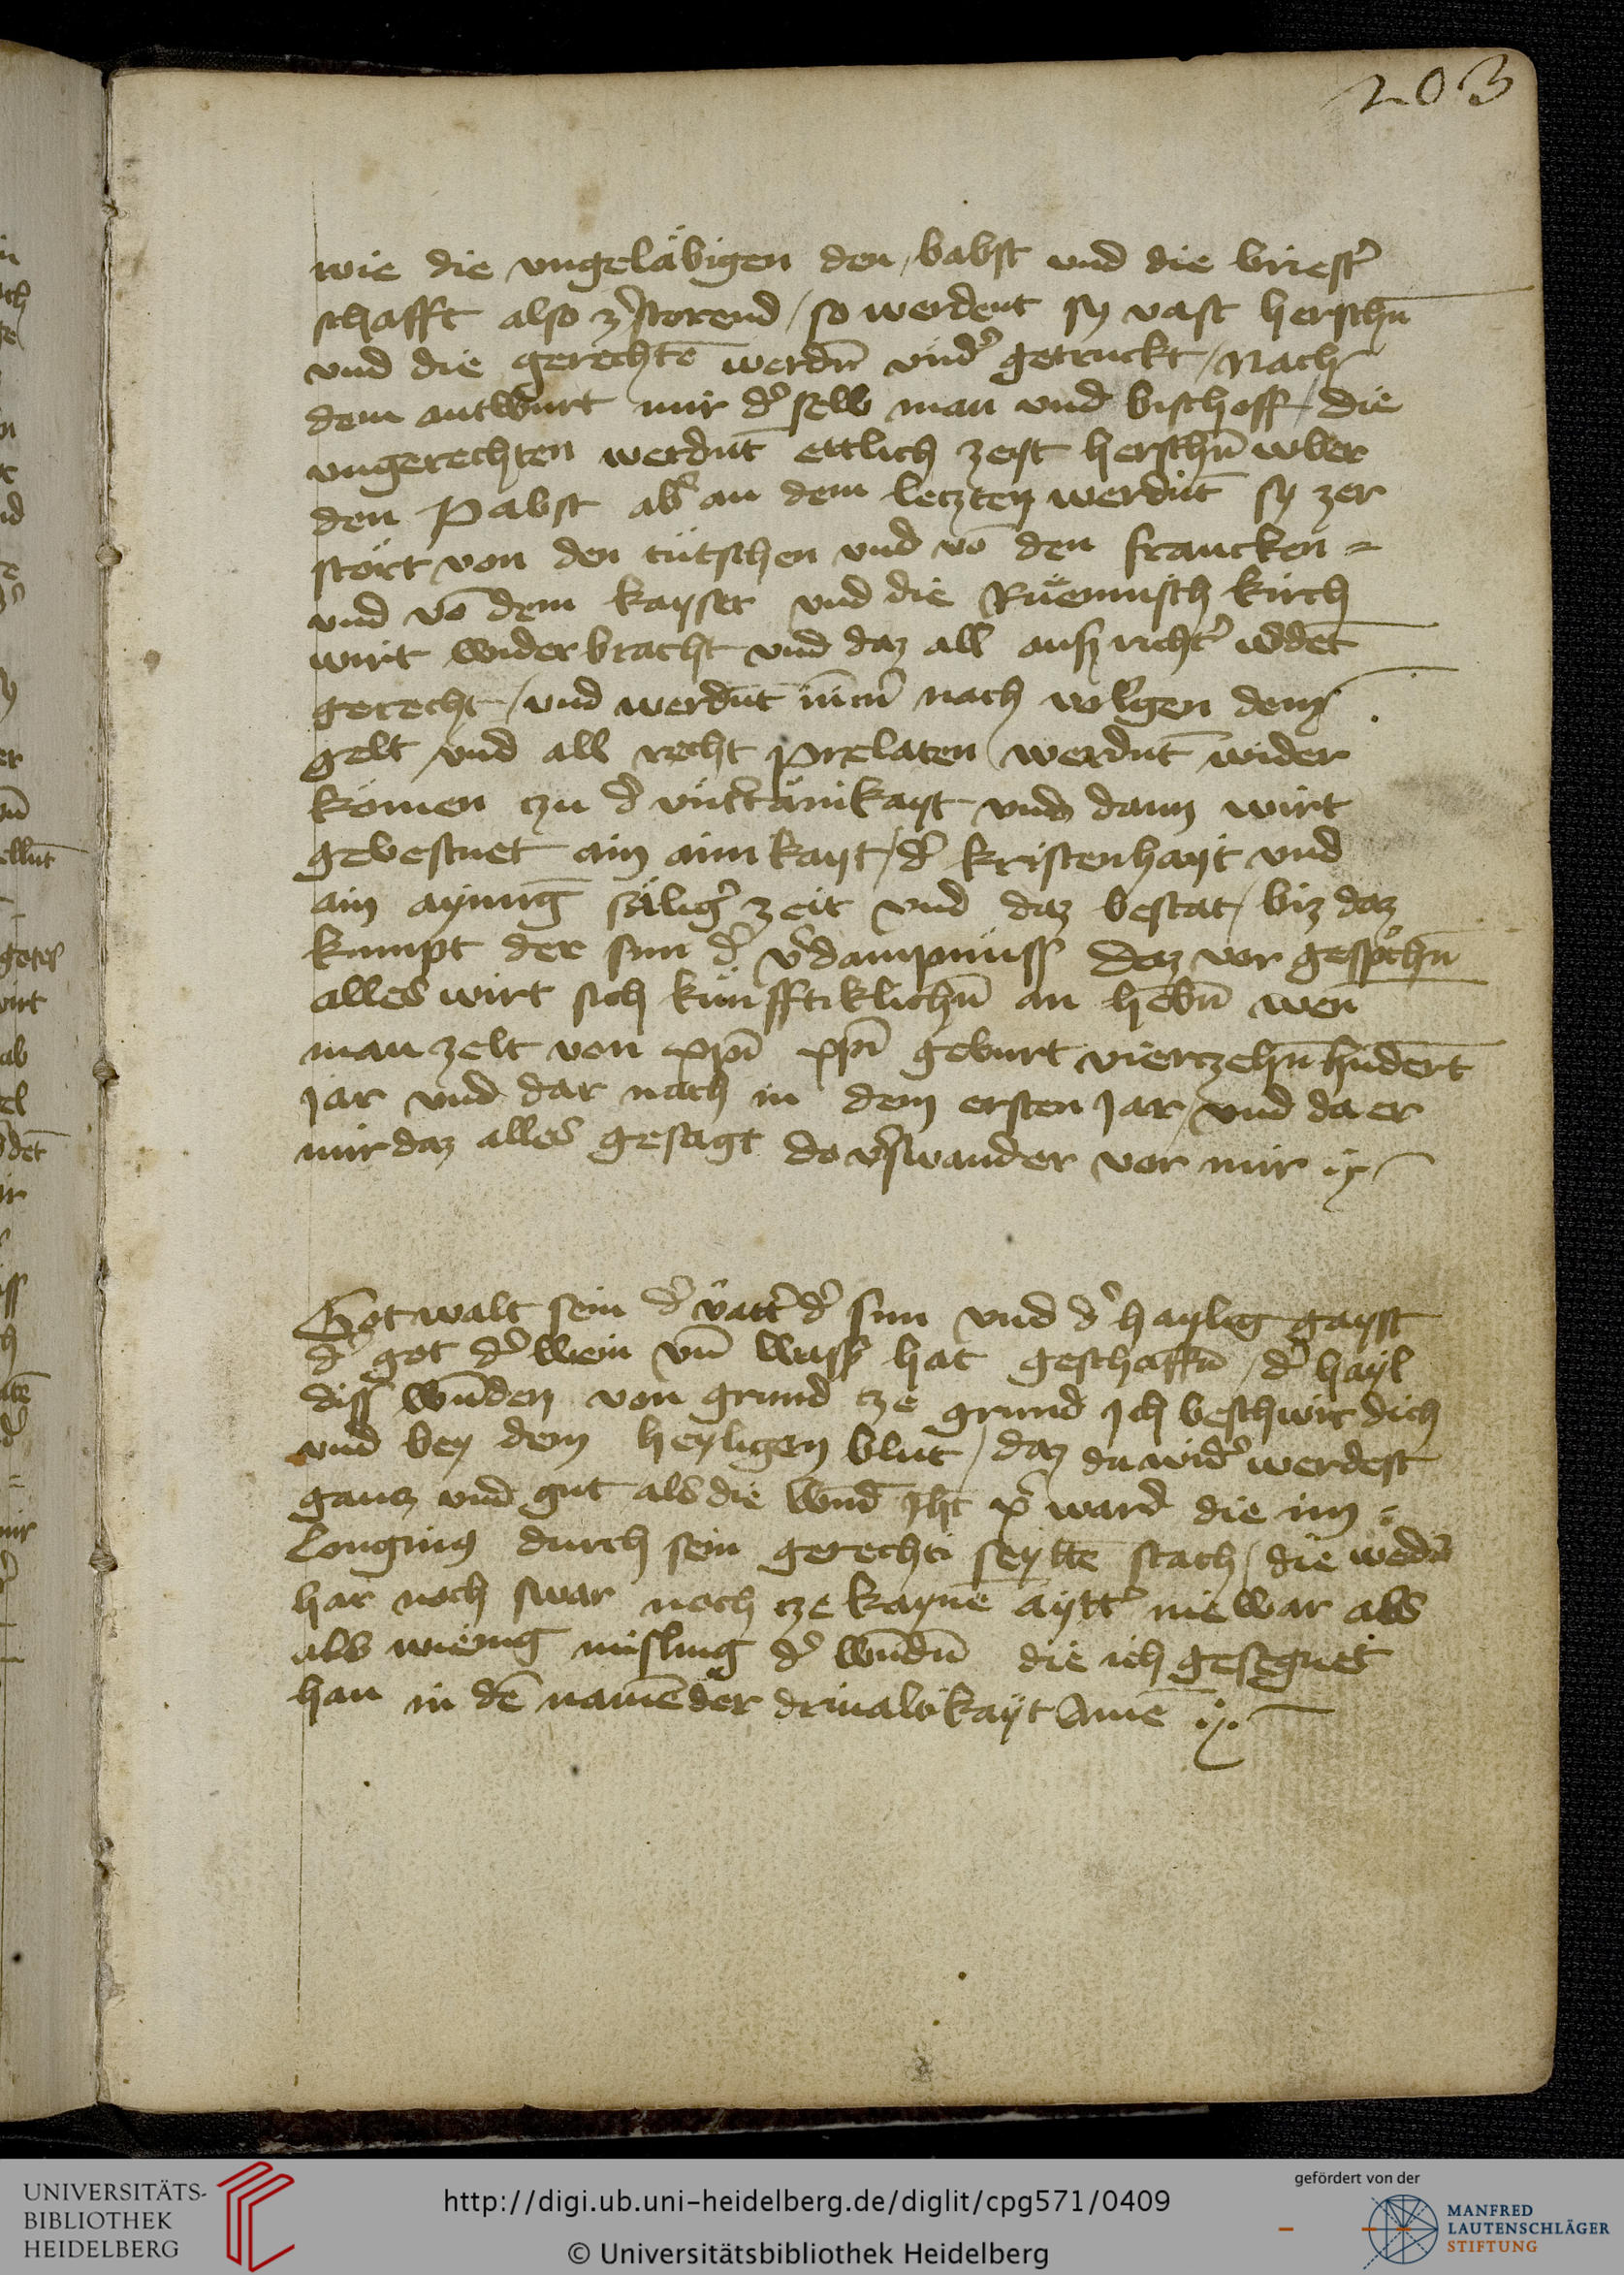 203
wie die ungeläbigen den babst und die briest᷑
schafft also z᷑storend / so werdent sy vast herschn̄
vnd die gerechtē werdn̄ vnd᷑ getruckt / Nach
dem antwurt mir d᷑ selb man vnd bischoff / die
vngerechten werdnt̄ ettlich zeyt herschn̄ wber
den Pabst ab᷑ an dem leczten werdnt̄ sy zer
stört von den tütschen vnd vō den francken =
vnd vō dem kayser vnd die Ruemnisch kirch
wirt widerbracht vnd daz all
gerecht / vnd werdnt̄ nach dem
gelt vnd all recht prelaten werdnt̄ wider
kömen czu d᷑ vnt᷑tänikayt vnd dann wirt
gevestnet ain ainikayt / d᷑ kristenhayt vnd
ain aynniḡ sälig᷑ zeit vnd daz bestat / biz daz
kumpt der sun d᷑ v᷑dampnüss daz vor gesp᷑chn̄
alles wirt sich künfftiklichn̄ an hebn̄ wen̄
man zelt von xpī xpī geburt vierczehn̄hundert
Jar vnd dar nach in dem ersten Jar / vnd da er
mir daz alles gesagt do v᷑swander vor mir
Got walt sein d᷑ vatt᷑ d᷑ sun vnd d᷑ haylig gayst
d᷑ got d᷑ wein vn̄ wass᷑ hat geschaffn̄ / d᷑ hayl
diss wunden von grund cze grund Ich beschwir dich
vnd bey dem heyligen blut / daz du wid᷑ werdest
gancz vnd gut als die wnd̄ Jhc xp̄ ward die im =
Longinus durch sein gerechti seyttē stach / die wed᷑
har noch swar noch cze kaynē aytt᷑ nie war als
als wienig misling d᷑ wundn̄ die ich gesegnet
han in dē namē der driualtikayt Amē
UNIVERSITÄTS-
BIBLIOTHEK
HEIDELBERG
http://digi.ub.uni-heidelberg.de/diglit/cpg571/0409
© Universitätsbibliothek Heidelberg
gefördert von der
MANFRED
LAUTENSCHLÄGER
STIFTUNG